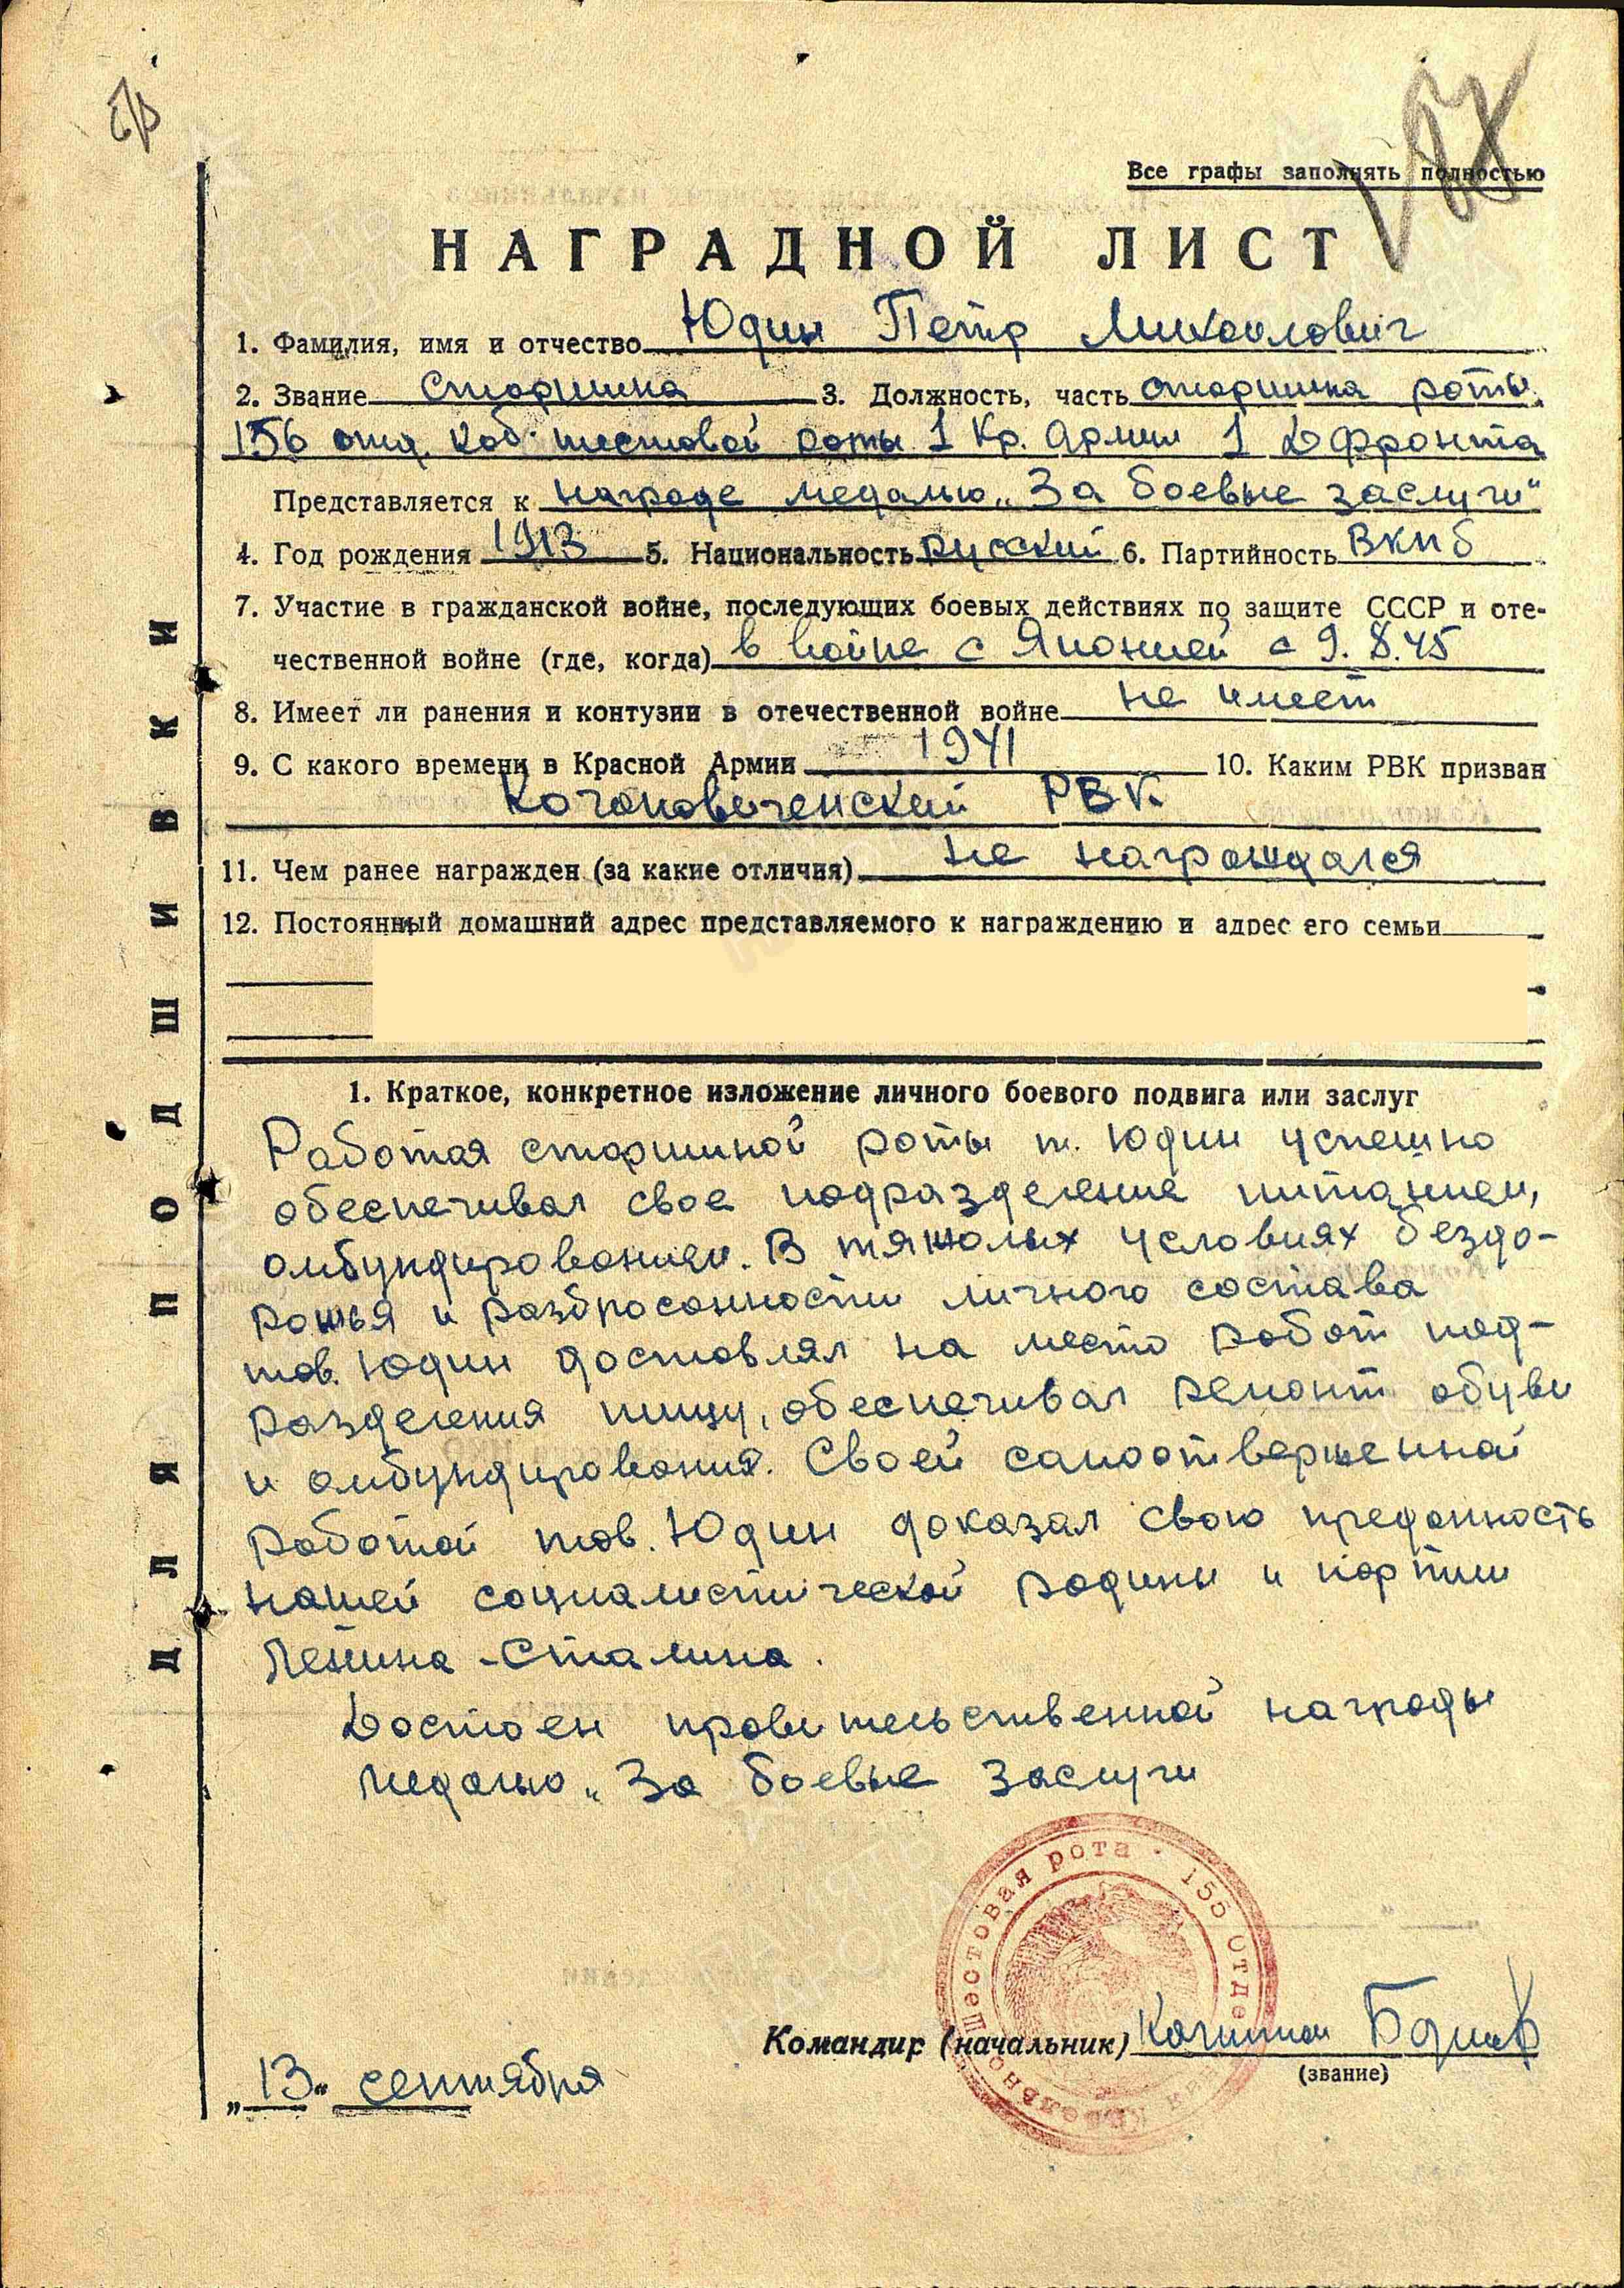 Все графы заполнять полностью
НАГРАДНОЙ ЛИСТ
1. Фамилия, имя и отчество Юдин Петр Михайлович
2. Звание Старшина 3. Должность, часть старшина роты
156 отд. каб. шестовой роты 1 Кр. Армии 1 ДФронта
Представляется к награде медалью „За боевые заслуги"
4. Год рождения 1913 5. Национальность русский 6. Партийность ВКПб
7. Участие в гражданской войне, последующих боевых действиях по защите СССР и оте-
чественной войне (где, когда) в войне с Японией с 9.8.45
8. Имеет ли ранения и контузии в отечественной войне не имеет
9. С какого времени в Красной Армии 1941 10. Каким РВК призван
РВК
11. Чем ранее награжден (за какие отличия) не награждался
12. Постоянный домашний адрес представляемого к награждению и адрес его семьи
1. Краткое, конкретное изложение личного боевого подвига или заслуг
Работая старшиной роты т. Юдин успешно
обеспечивал свое подразделение питанием,
омбундированием. В тяжолых условиях бездо-
рожья и разбросанности личного состава
тов. Юдин доставлял на место работ под-
разделения пищу, обеспечивал ремонт обуви
и омбундирования. Своей самоотверженной
работой тов. Юдин доказал свою преданность
нашей социалистической родины и партии
Ленина-Сталина.
Достоен правительственной награды
медалью „За боевые заслуги
Командир (начальник) Капитан
(звание)
„13" сентября
ДЛЯ ПОДШИВКИ